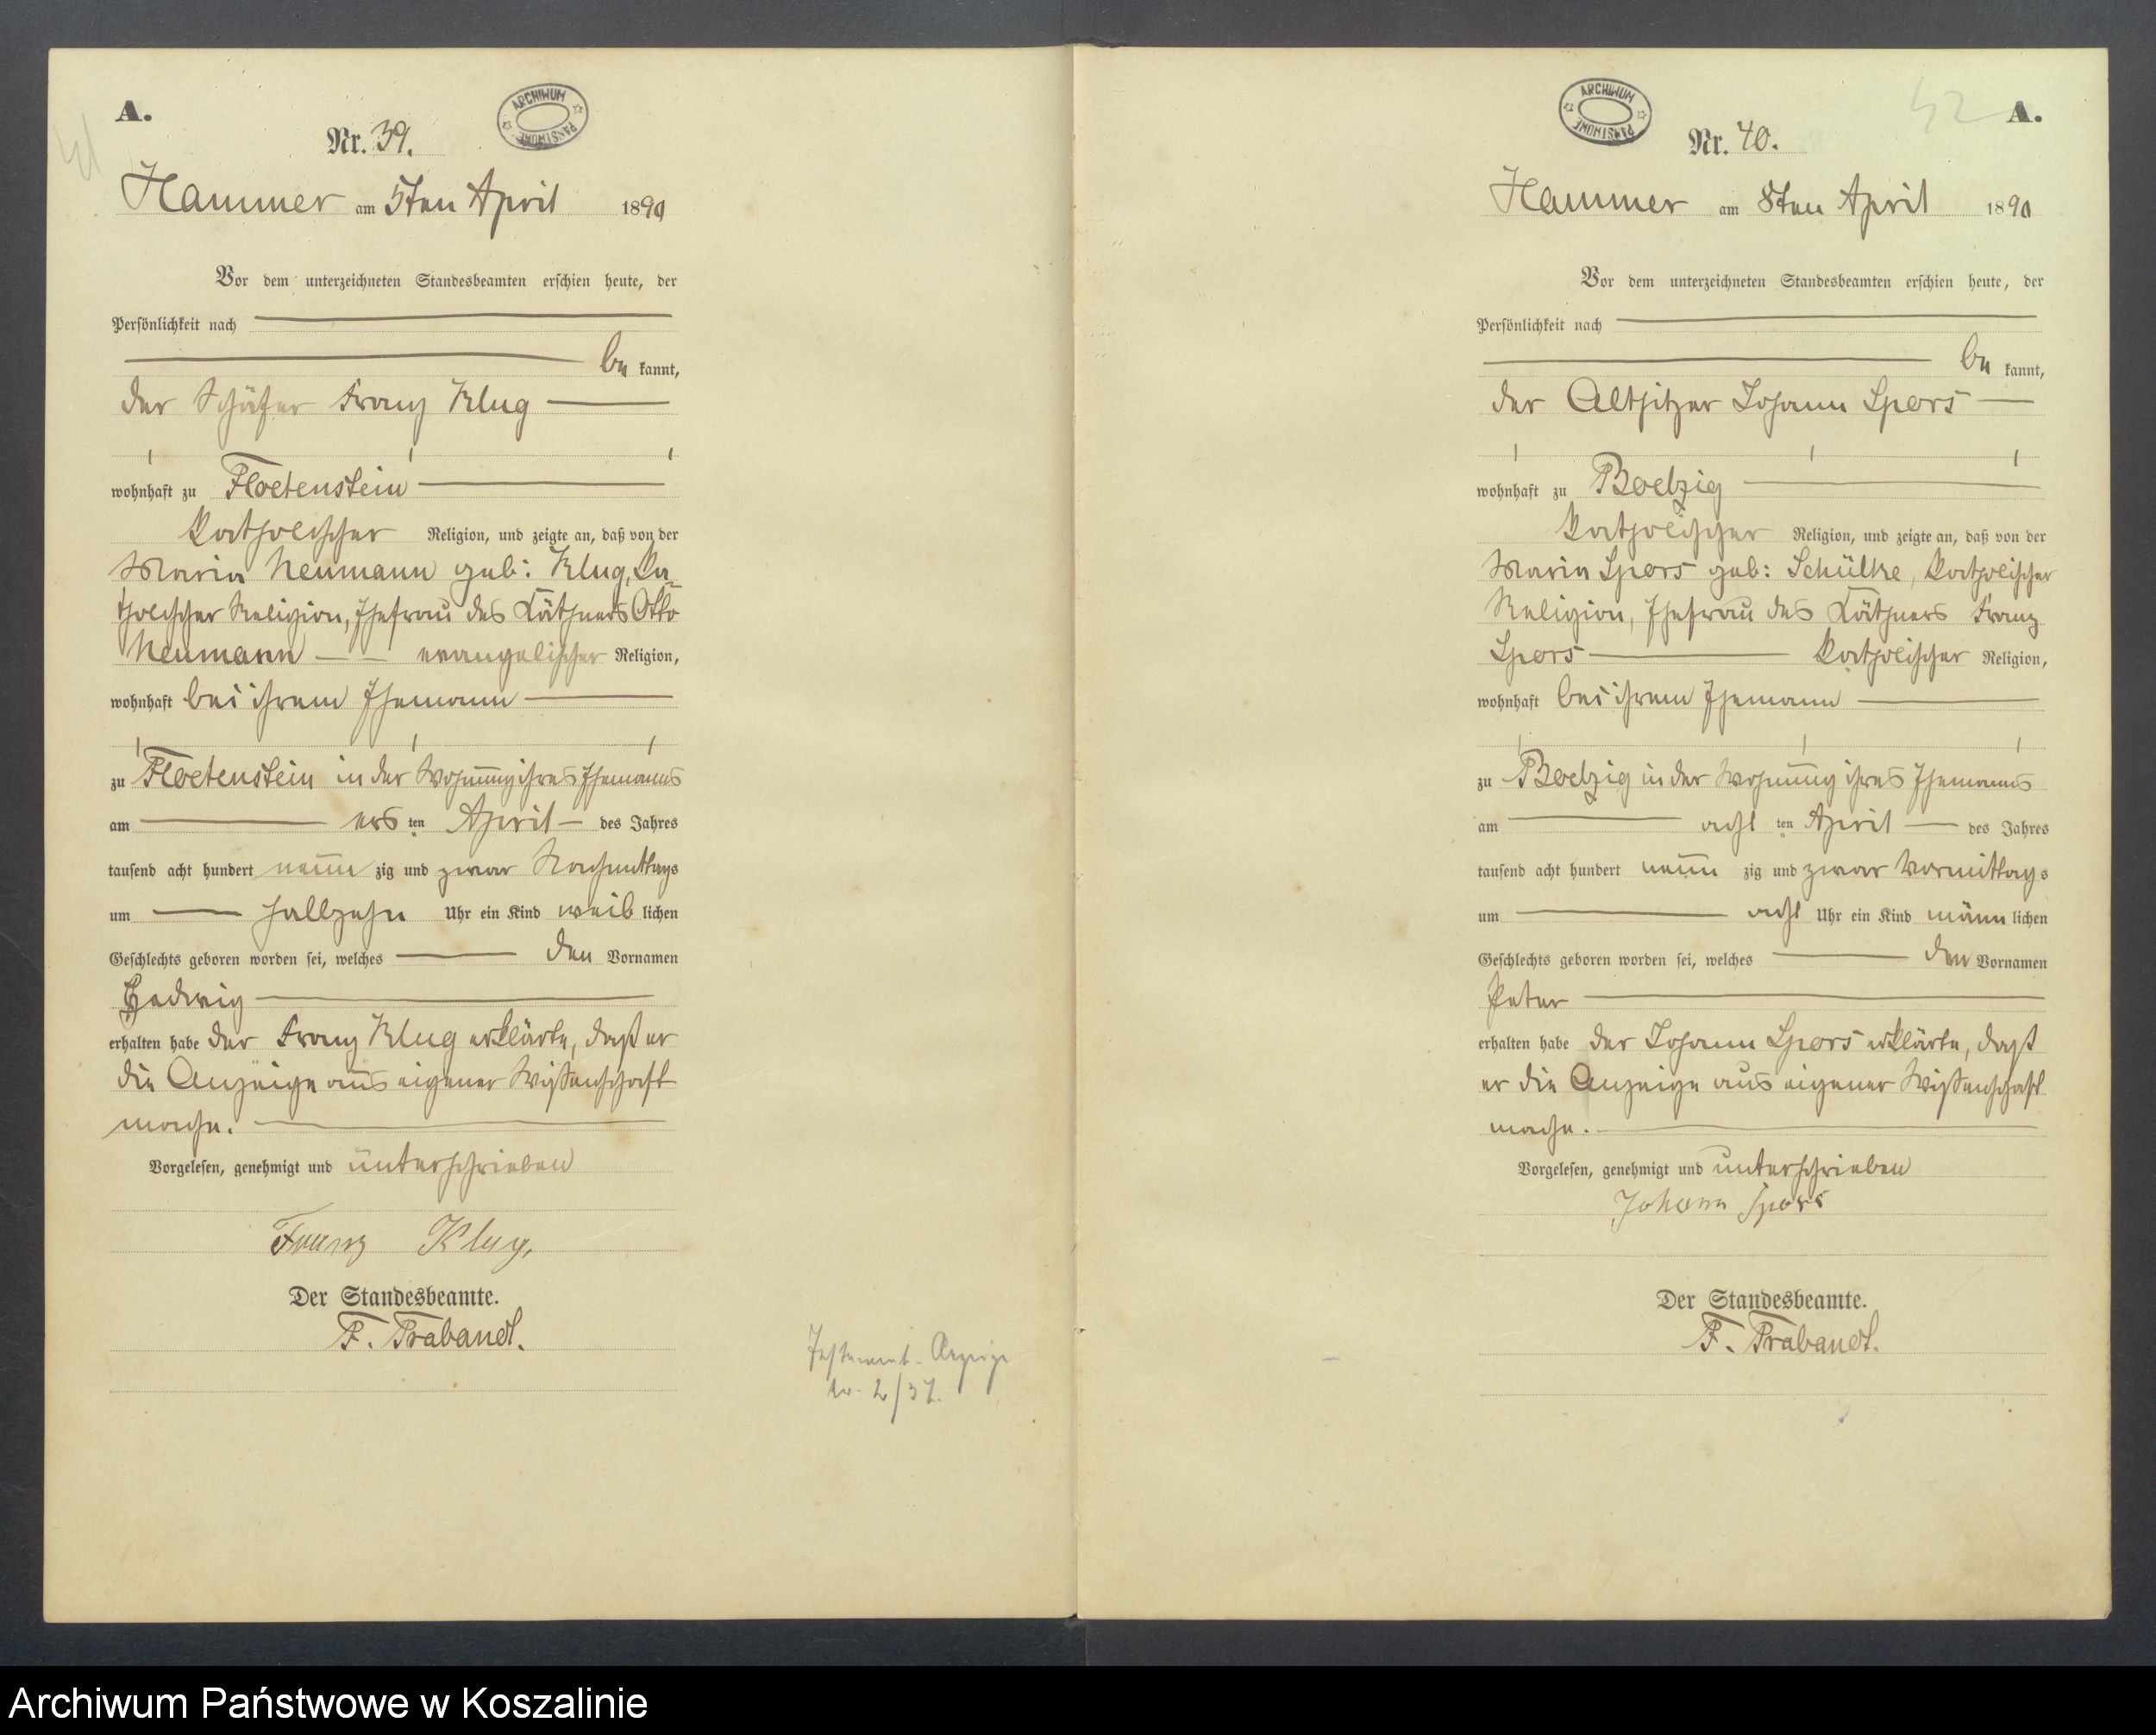 A.
41
Nr. 39.
ARCHIWUM PAŃSTWOWE
Hammer am 5ten April 1890
Vor dem unterzeichneten Standesbeamten erschien heute, der
Persönlichkeit nach
be kannt,
der Schäfer Franz Klug
wohnhaft zu Floetenstein
katholischer Religion, und zeigte an, daß von der
Maria Neumann geb: Klug, ka-
tholischer Religion, Ehefrau des Käthners Otto
Neumann evangelischer Religion,
wohnhaft bei ihrem Ehemann
zu Floetenstein in der Wohnung ihres Ehemanns
am ers ten April des Jahres
tausend acht hundert neun zig und zwar Nachmittags
um halbzehn Uhr ein Kind weib lichen
Geschlechts geboren worden sei, welches den Vornamen
Hedwig
erhalten habe der Franz Klug erklärte, daß er
die Anzeige aus eigener Wissenschaft
mache.
Vorgelesen, genehmigt und unterschrieben
Franz Klug,
Der Standesbeamte.
F. Trabandt.
Testament-Anzeige
Nr. 2/37.
ARCHIWUM PAŃSTWOWE
42
A.
Nr. 40.
Hammer am 8ten April 1890
Vor dem unterzeichneten Standesbeamten erschien heute, der
Persönlichkeit nach
be kannt,
der Altsitzer Johann Spors
wohnhaft zu Boelzig
katholischer Religion, und zeigte an, daß von der
Maria Spors geb: Schülke, katholischer
Religion, Ehefrau des Käthners Franz
Spors katholischer Religion,
wohnhaft bei ihrem Ehemann
zu Boelzig in der Wohnung ihres Ehemanns
am acht ten April des Jahres
tausend acht hundert neun zig und zwar Vormittags
um acht Uhr ein Kind männ lichen
Geschlechts geboren worden sei, welches den Vornamen
Peter
erhalten habe der Johann Spors erklärte, daß
er die Anzeige aus eigener Wissenschaft
mache.
Vorgelesen, genehmigt und unterschrieben
Johann Spors
Der Standesbeamte.
F. Trabandt.
Archiwum Państwowe w Koszalinie